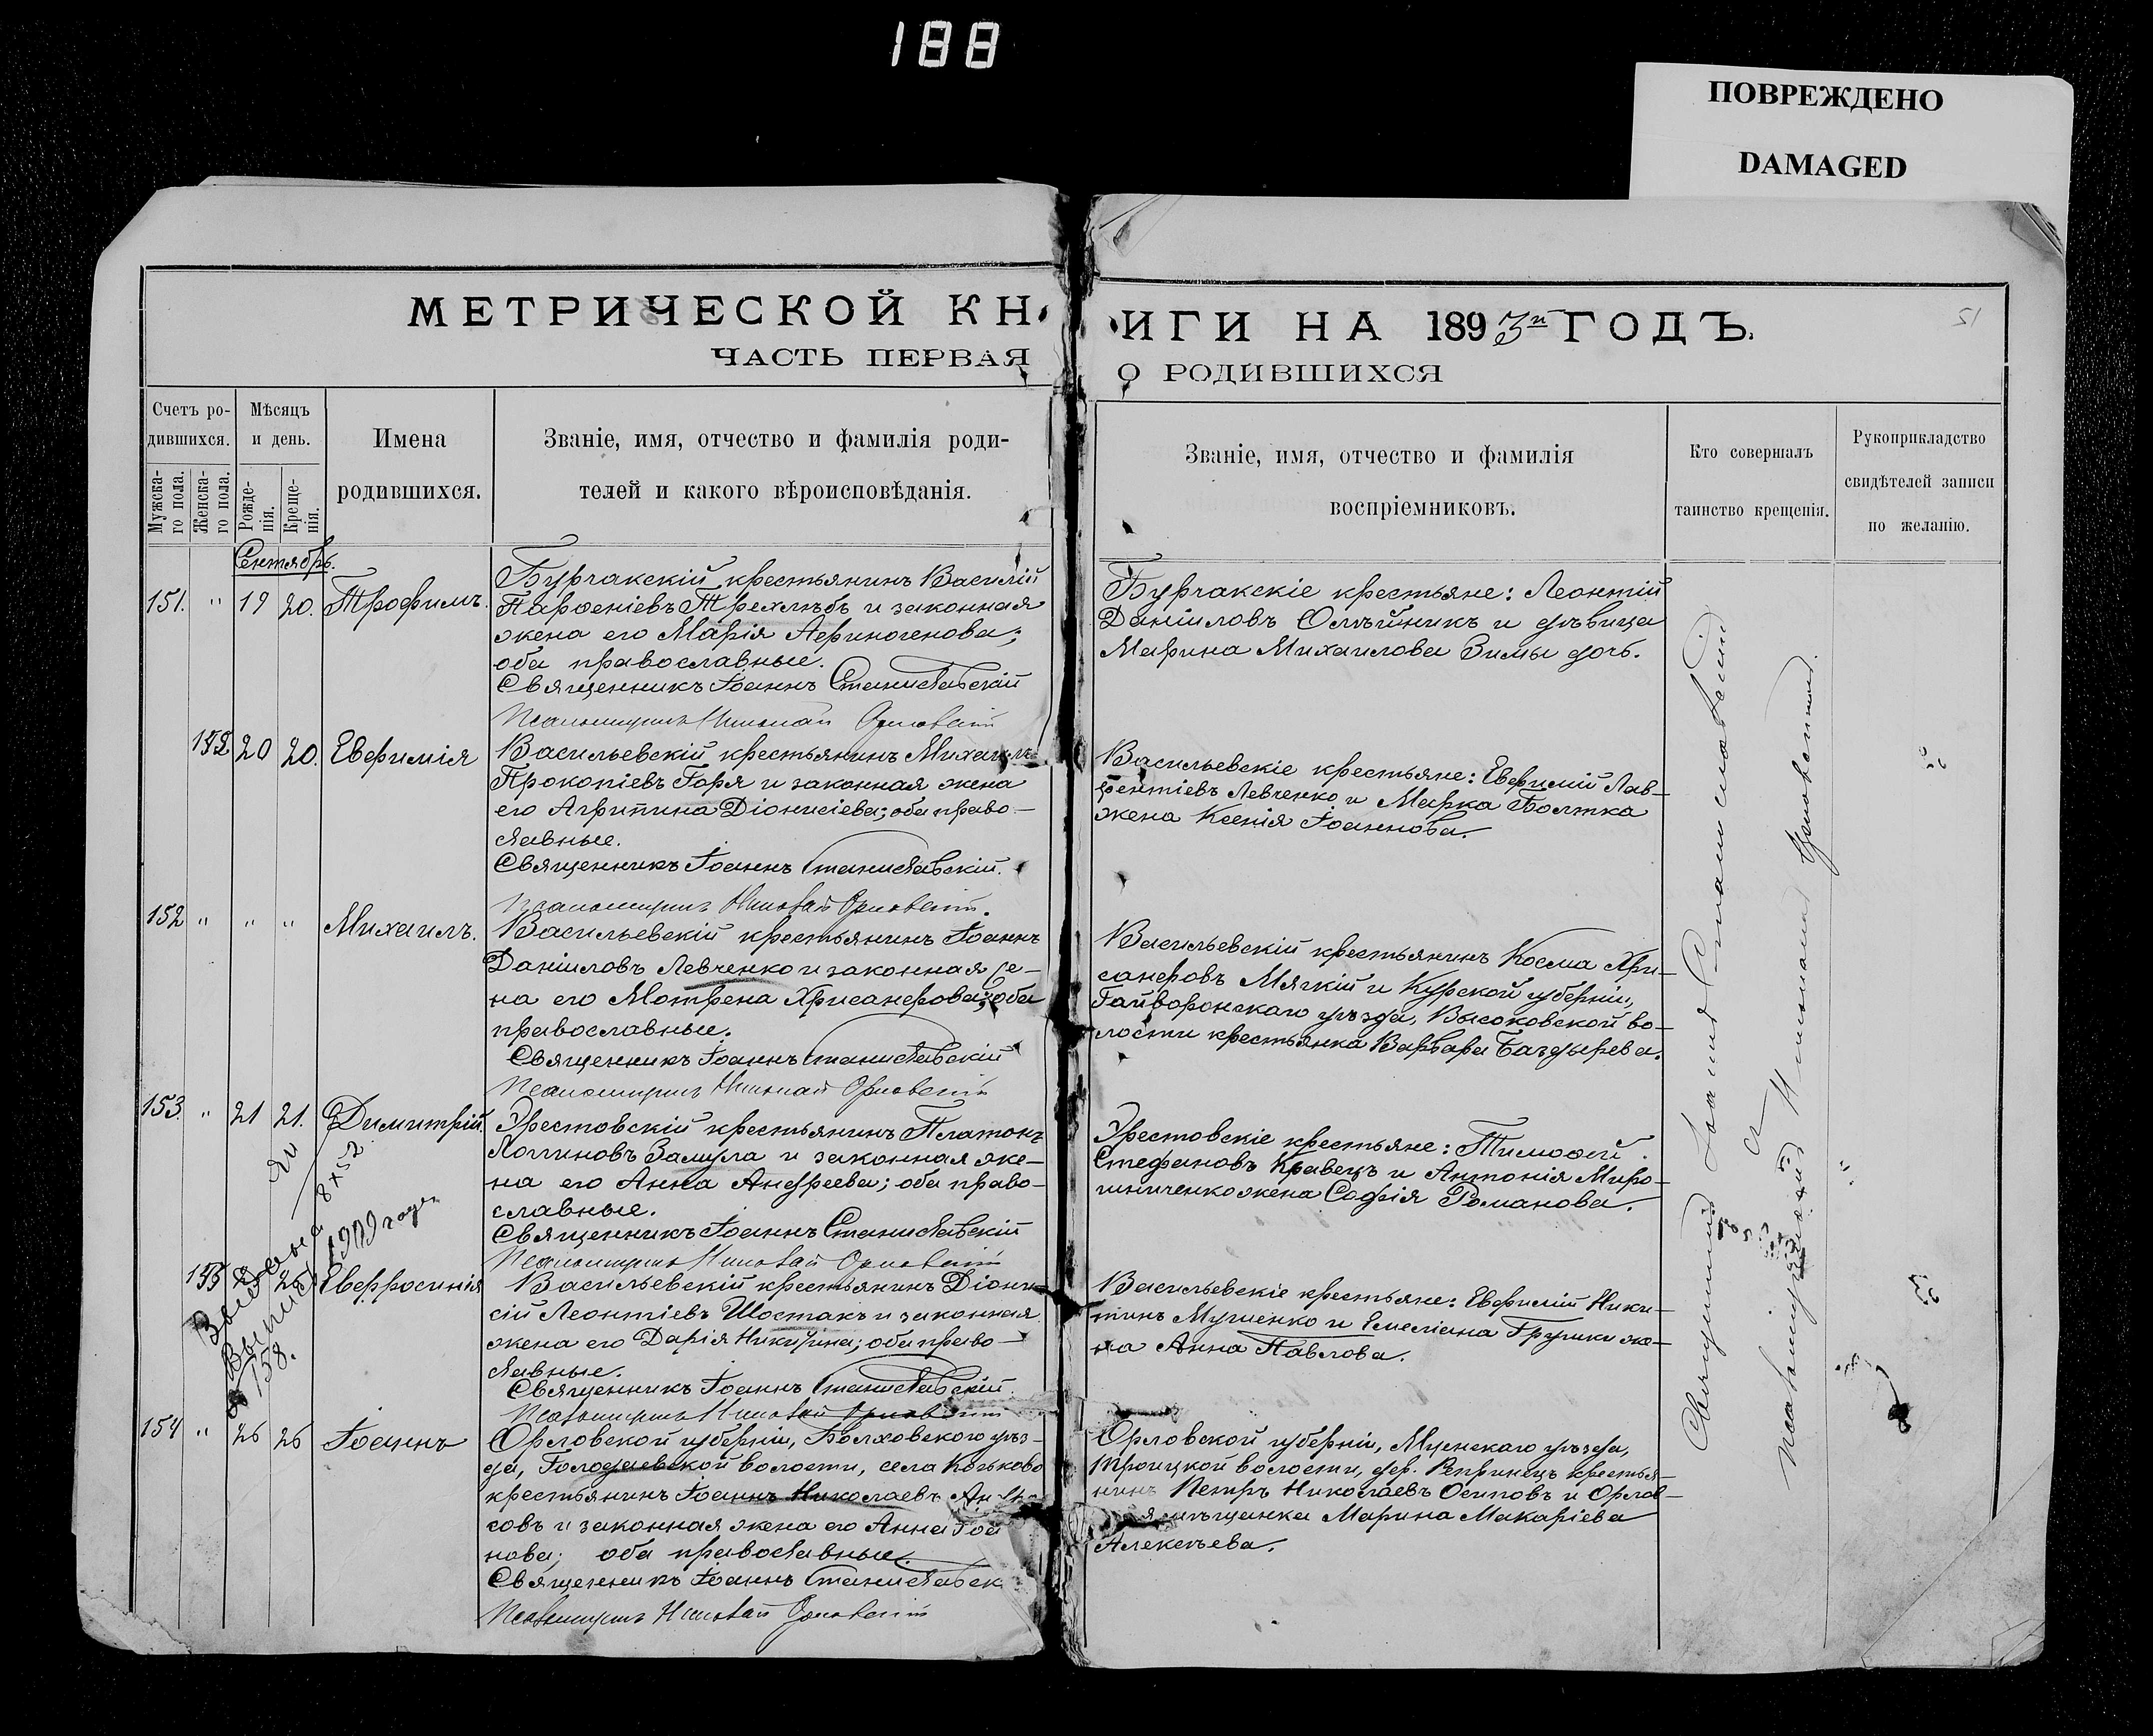 188
ПОВРЕЖДЕНО
DAMAGED
МЕТРИЧЕСКОЙ КН
ИГИ НА 1893й ГОДЪ.
ЧАСТЬ ПЕРВАЯ
О РОДИВШИХСЯ
51
Счетъ ро-
дившихся.
Мужска-
го пола.
Женска-
го пола.
Мѣсяцъ
и день.
Рожде-
нія.
Креще-
нія.
Имена
родившихся.
Званіе, имя, отчество и фамилія роди-
телей и какого вѣроисповѣданія.
Званіе, имя, отчество и фамилія
воспріемниковъ.
Кто совершалъ
таинство крещенія.
Рукоприкладство
свидѣтелей записи
по желанію.
Сентябрь.
151. " 19 20. Трофимъ.
Бурчакскій крестьянинъ Василій
Парѳеніевъ Трехлѣбъ и законная
жена его Марія Аѳиногенова;
оба православные.
Священникъ Іоаннъ Станиславскій
Псаломщикъ Николай Орловскій
Бурчакскіе крестьяне: Леонтій
Даніиловъ Олѣйникъ и дѣвица
Марина Михаилова Зимы дочь.
152 20 20. Евфимія
Васильевскій крестьянинъ Михаилъ
Прокопіевъ Горя и законная жена
его Агрипина Діонисіева; оба право-
славные.
Священникъ Іоаннъ Станиславскій.
Псаломщикъ Николай Орловскій.
Васильевскіе крестьяне: Евфимій Лав-
рентіевъ Левченко и Марка Болтка
жена Ксенія Іоаннова.
152 " " " Михаилъ.
Васильевскій крестьянинъ Іоаннъ
Даніиловъ Левченко и законная же-
на его Мотрена Хрисанфова; оба
православные.
Священникъ Іоаннъ Станиславскій
Псаломщикъ Николай Орловскій
Васильевскій крестьянинъ Косма Хри-
санфовъ Мягкій и Курской губерніи,
Гайворонскаго уѣзда, Высоковской во-
лости крестьянка Варвара
153. " 21 21. Димитрій.
крестьянинъ Платонъ
Логгиновъ Замула и законная же-
на его Анна Андреева; оба право-
славные.
Священникъ Іоаннъ Станиславскій
Псаломщикъ Николай Орловскій
крестьяне: Тимоѳей
Стефановъ Кравецъ и Антонія Миро-
шниченко жена Софія Романова.
1909 года
158.
25 26 Евфросинія
Васильевскій крестьянинъ Діони-
сій Леонтіевъ Шостакъ и законная
жена его Дарія Никитина; оба право-
славные.
Священникъ Іоаннъ Станиславскій.
Псаломщикъ Николай Орловскій
Васильевскіе крестьяне: Евфимій Ники-
тинъ Мушенко и Емеліана Грушки же-
на Анна Павлова.
154 " 26 26 Іоаннъ
Орловской губерніи, Болховскаго уѣз-
да, Голодаевской волости, села Коньково
крестьянинъ Іоаннъ Николаевъ
совъ и законная жена его Анна Іоан
нова; оба православные.
Священникъ Іоаннъ Станиславск
Псаломщикъ Николай Орловскій
Орловской губерніи, Мценскаго уѣзда,
Троицкой волости, дер. крестья-
нинъ Петръ Николаевъ Осиповъ и Орлов-
мѣщанка Марина Макаріева
Алексѣева.
Священникъ Іоаннъ Станиславскій
съ
псаломщикомъ Николаемъ Орловскимъ.